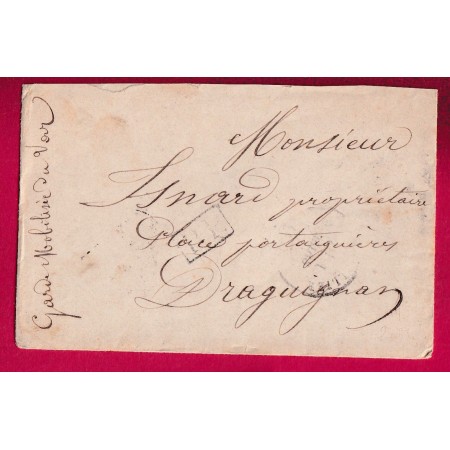 Monsieur
Isnard propriétaire
Place portaiguières
Draguignan
Garde Mobilisée du Var